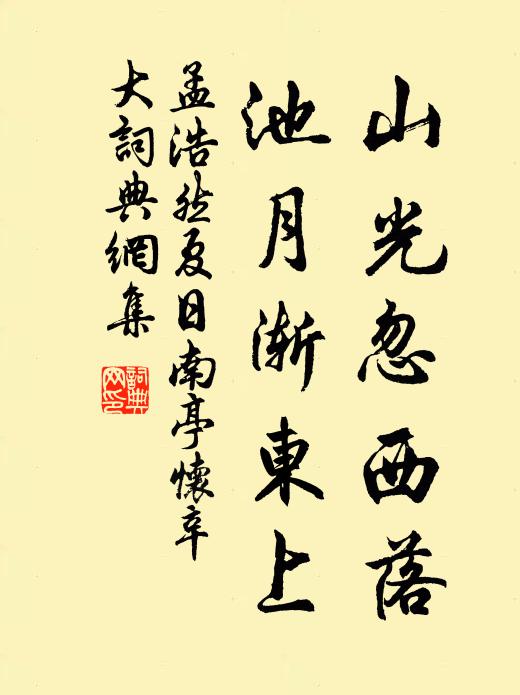 山光忽西落
池月渐東上
孟浩然夏日南亭懷辛
大詞典網集
詞典網印